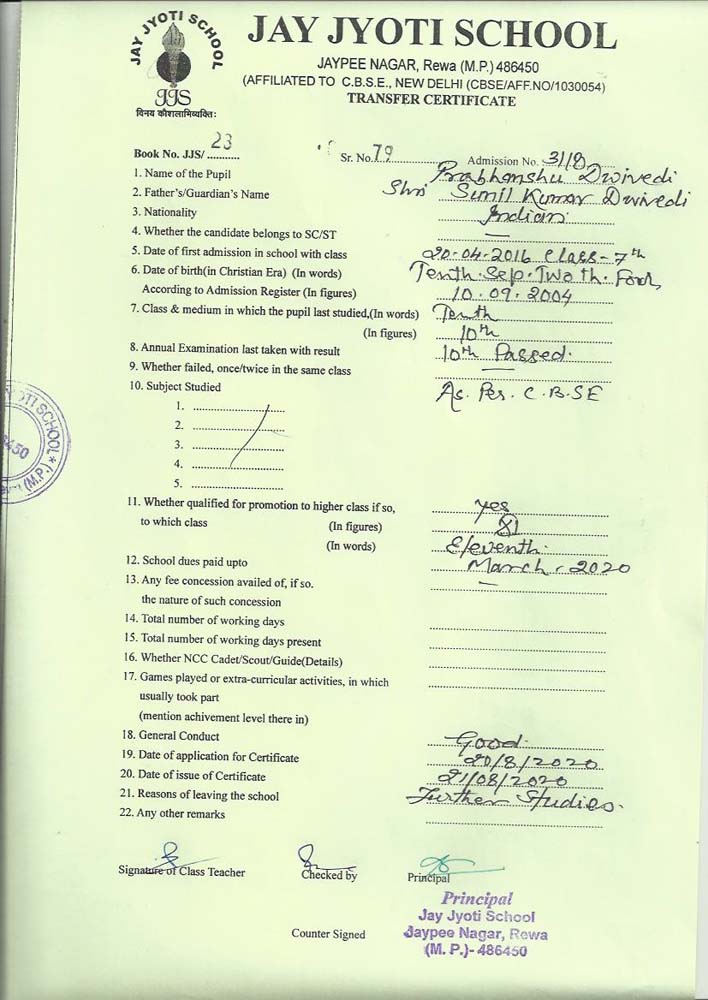 JAY JYOTI SCHOOL
JJS
विनय कौशलाभिव्यक्तिः
JAY JYOTI SCHOOL
JAYPEE NAGAR, Rewa (M.P.) 486450
(AFFILIATED TO C.B.S.E., NEW DELHI (CBSE/AFF.NO/1030054)
TRANSFER CERTIFICATE
Book No. JJS/ 23 Sr. No. 79 Admission No. 3118
1. Name of the Pupil Prabhanshu Dwivedi
2. Father's/Guardian's Name Shri Sunil Kumar Dwivedi
3. Nationality Indian
4. Whether the candidate belongs to SC/ST —
5. Date of first admission in school with class 20.04.2016 Class-7th
6. Date of birth(in Christian Era) (In words) Tenth.Sep.Two th.Four
According to Admission Register (In figures) 10.09.2004
7. Class & medium in which the pupil last studied,(In words) Tenth
(In figures) 10th
8. Annual Examination last taken with result 10th Passed.
9. Whether failed, once/twice in the same class —
10. Subject Studied As. Per. C.B.SE
1.
2.
3.
4.
5.
11. Whether qualified for promotion to higher class if so, yes
to which class (In figures) XI
(In words) Eleventh.
12. School dues paid upto March - 2020
13. Any fee concession availed of, if so. —
the nature of such concession
14. Total number of working days
15. Total number of working days present
16. Whether NCC Cadet/Scout/Guide(Details)
17. Games played or extra-curricular activities, in which
usually took part
(mention achivement level there in)
18. General Conduct Good.
19. Date of application for Certificate 20/8/2020
20. Date of issue of Certificate 21/08/2020
21. Reasons of leaving the school Further Studies.
22. Any other remarks
Signature of Class Teacher Checked by Principal
Principal
Jay Jyoti School
Counter Signed Jaypee Nagar, Rewa
(M. P.)- 486450